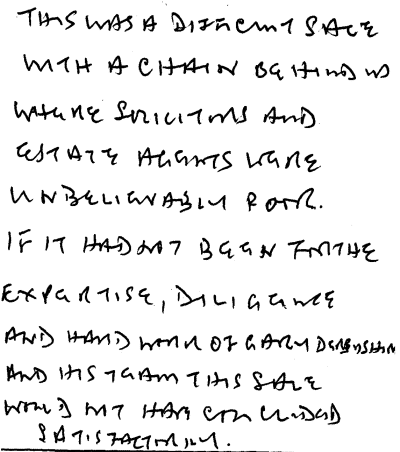 THIS WAS A DIFFICULT SALE
WITH A CHAIN BEHIND US
WHERE SOLICITORS AND
ESTATE AGENTS WERE
UNBELIEVABLY POOR.
IF IT HAD NOT BEEN FOR THE
EXPERTISE, DILIGENCE
AND HARD WORK OF GARY
AND HIS TEAM THIS SALE
WOULD NOT HAVE CONCLUDED
SATISFACTORILY.